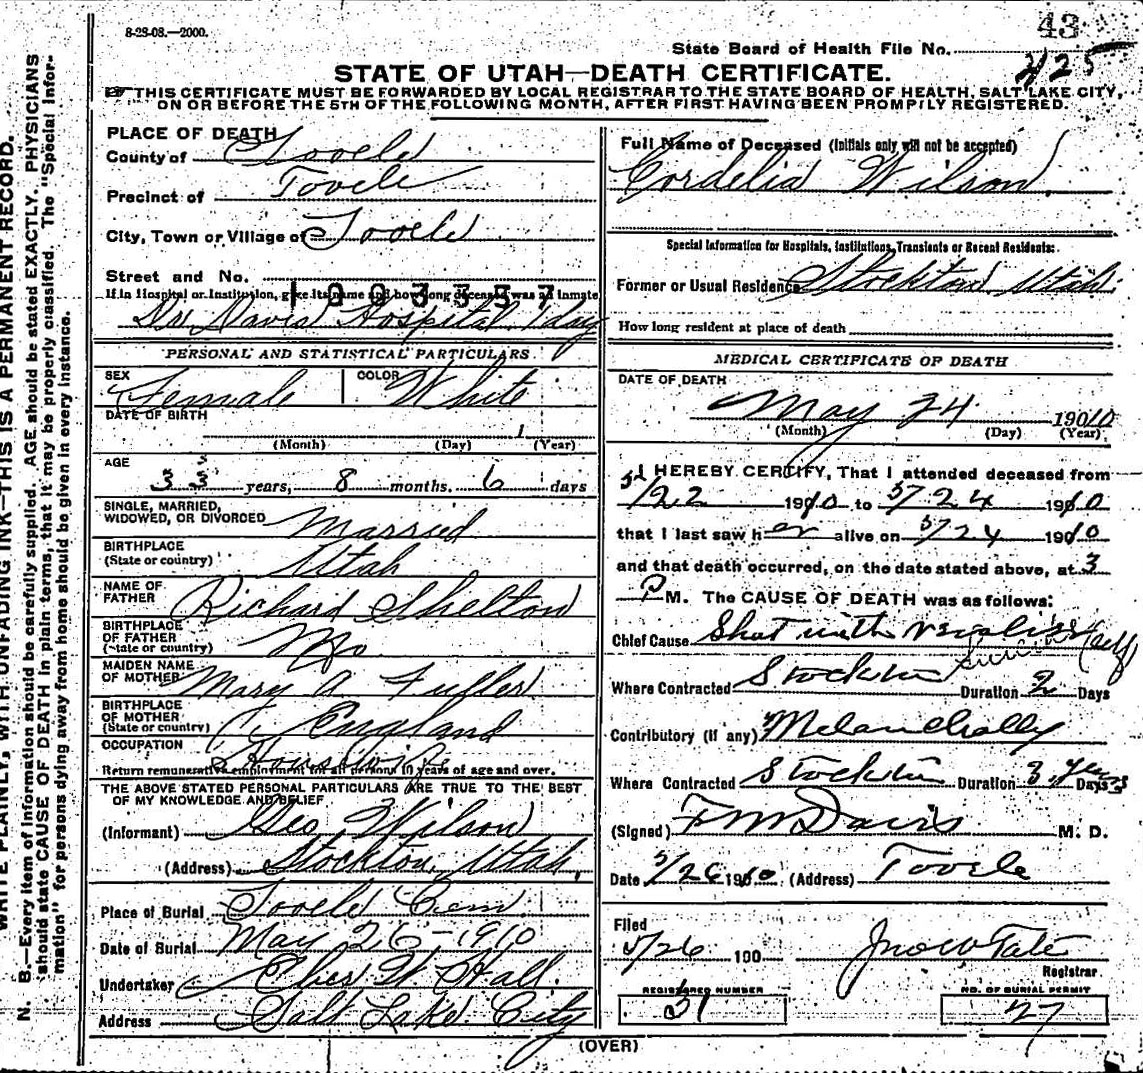 8-28-08.—2000.
43
State Board of Health File No. 425
STATE OF UTAH—DEATH CERTIFICATE.
THIS CERTIFICATE MUST BE FORWARDED BY LOCAL REGISTRAR TO THE STATE BOARD OF HEALTH, SALT LAKE CITY,
ON OR BEFORE THE 5TH OF THE FOLLOWING MONTH, AFTER FIRST HAVING BEEN PROMPTLY REGISTERED.
N. B.—Every item of information should be carefully supplied. AGE should be stated EXACTLY. PHYSICIANS
should state CAUSE OF DEATH in plain terms, that it may be properly classified. The "Special Infor-
mation" for persons dying away from home should be given in every instance.
WRITE PLAINLY, WITH UNFADING INK—THIS IS A PERMANENT RECORD.
PLACE OF DEATH
County of Tooele
Precinct of Tooele
City, Town or Village of Tooele
Street and No.
If in Hospital or Institution, give its name and how long deceased was an inmate
1003357
Drs Davis Hospital 1 day
PERSONAL AND STATISTICAL PARTICULARS.
SEX Female COLOR White
DATE OF BIRTH
(Month) (Day) 1 (Year)
AGE
33 years, 8 months, 6 days
SINGLE, MARRIED,
WIDOWED, OR DIVORCED Married
BIRTHPLACE
(State or country) Utah
NAME OF
FATHER Richard Shelton
BIRTHPLACE
OF FATHER
(State or country) Mo
MAIDEN NAME
OF MOTHER Mary A Fuller
BIRTHPLACE
OF MOTHER
(State or country) England
OCCUPATION Housewife
Return remunerative employment for all persons 10 years of age and over.
THE ABOVE STATED PERSONAL PARTICULARS ARE TRUE TO THE BEST
OF MY KNOWLEDGE AND BELIEF
(Informant) Geo Wilson
(Address) Stockton, Utah.
Place of Burial Tooele Cem.
Date of Burial May 26-1910
Undertaker W. Hall.
Address Salt Lake City
Full Name of Deceased (Initials only will not be accepted)
Cordelia Wilson.
Special Information for Hospitals, Institutions, Transients or Recent Residents:
Former or Usual Residence Stockton Utah
How long resident at place of death
MEDICAL CERTIFICATE OF DEATH
DATE OF DEATH
May 24 1910
(Month) (Day) (Year)
I HEREBY CERTIFY, That I attended deceased from
5/22 1910 to 5/24 1910
that I last saw her alive on 5/24 1910
and that death occurred, on the date stated above, at 3
P M. The CAUSE OF DEATH was as follows:
Chief Cause Shot with revolver (self
Suicide
Where Contracted Stockton Duration 2 Days
Contributory (if any) Melancholly
Where Contracted Stockton Duration 3 years Days
(Signed) F M Davis M. D.
Date 5/26 1910 (Address) Tooele
Filed
5/26 190 Jno W Tate
Registrar
REGISTERED NUMBER
51
NO. OF BURIAL PERMIT
27
(OVER)